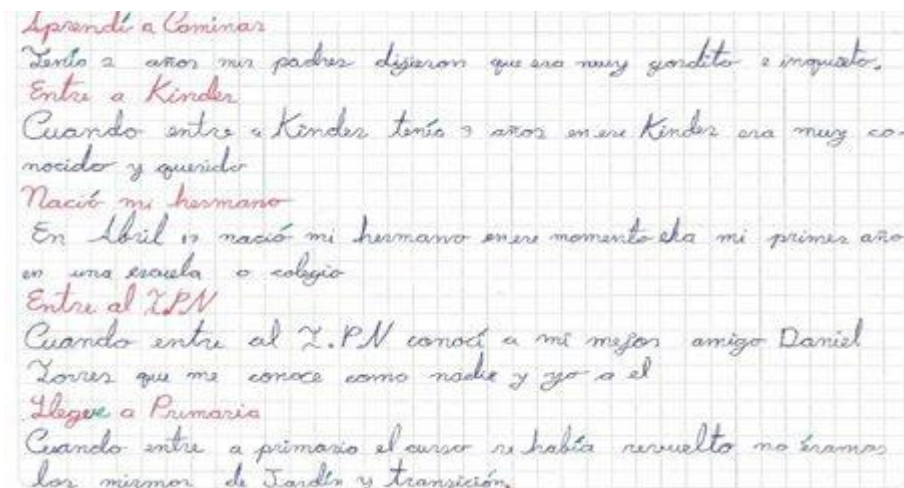 Aprendí a Caminar
Tenía 2 años mis padres dijieron que era muy gordito e inquieto.
Entre a Kinder
Cuando entre a Kinder tenía 3 años en ese Kinder era muy co-
nocido y querido
Nació mi hermano
En Abril 17 nació mi hermano en ese momento era mi primer año
en una escuela o colegio
Entre al I.P.N
Cuando entre al I.P.N conocí a mi mejor amigo Daniel
Torres que me conoce como nadie y yo a el
Llegue a Primaria
Cuando entre a primaria el curso se había revuelto no éramos
los mismos de Jardín y transición.